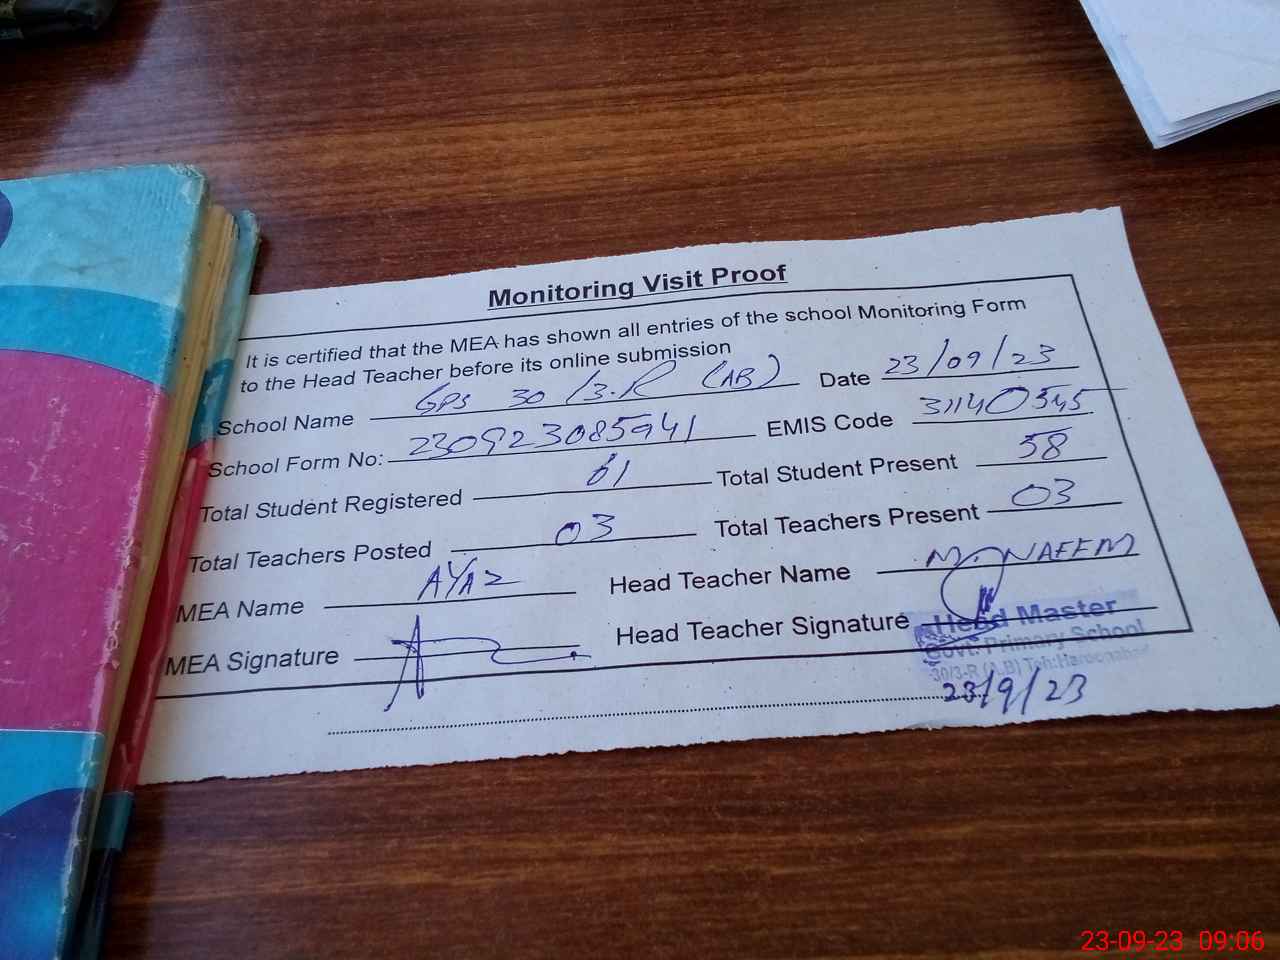 Monitoring Visit Proof
It is certified that the MEA has shown all entries of the school Monitoring Form
to the Head Teacher before its online submission
School Name GPS 30/3.R (AB) Date 23/09/23
School Form No: 230923085941 EMIS Code 31140545
Total Student Registered 61 Total Student Present 58
Total Teachers Posted 03 Total Teachers Present 03
MEA Name AYAZ Head Teacher Name M. NAEEM
MEA Signature Head Teacher Signature
Head Master
Govt. Primary School
30/3-R (A.B) Teh: Haroonabad
23/9/23
23-09-23 09:06